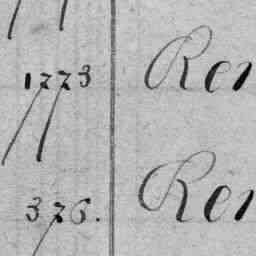 1773 Ren
376. Ren